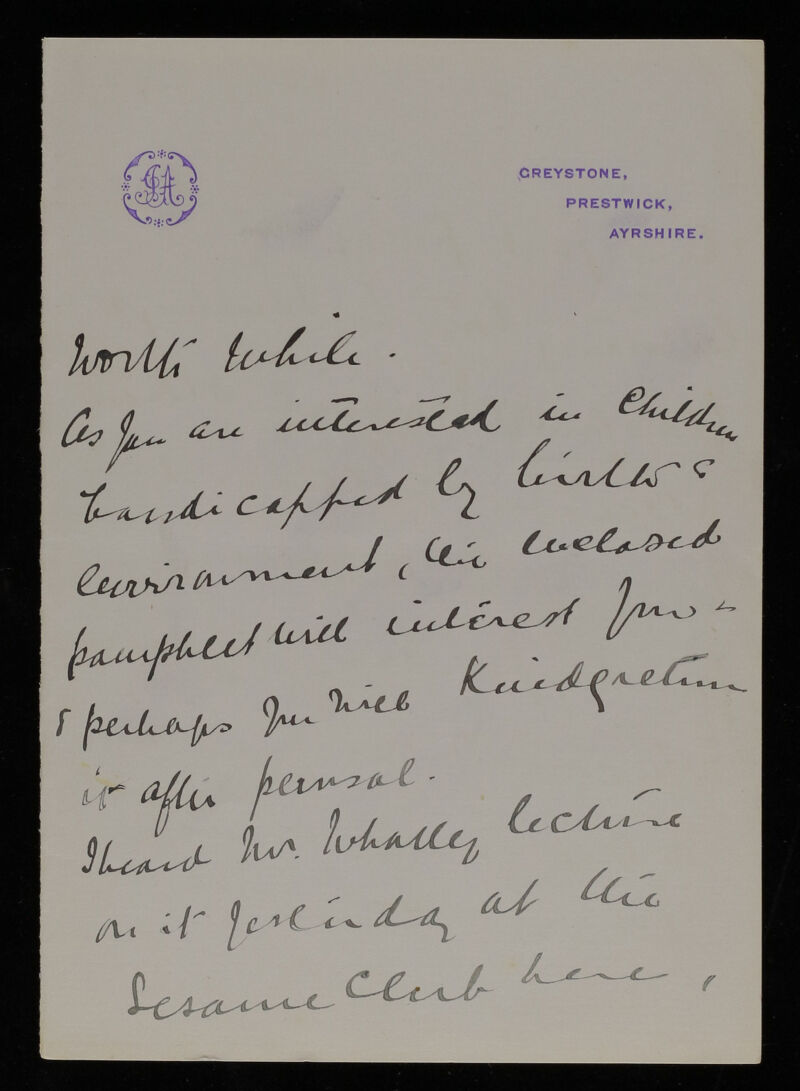 GREYSTONE,
PRESTWICK,
AYRSHIRE.
Worth While.
As you are interested in Children
handicapped by birth &
environment, the enclosed
pamphlet will interest you -
& perhaps you will Kindly return
it after perusal.
I heard Mr. Whatley lecture
on it yesterday at the
Sesame Club here,